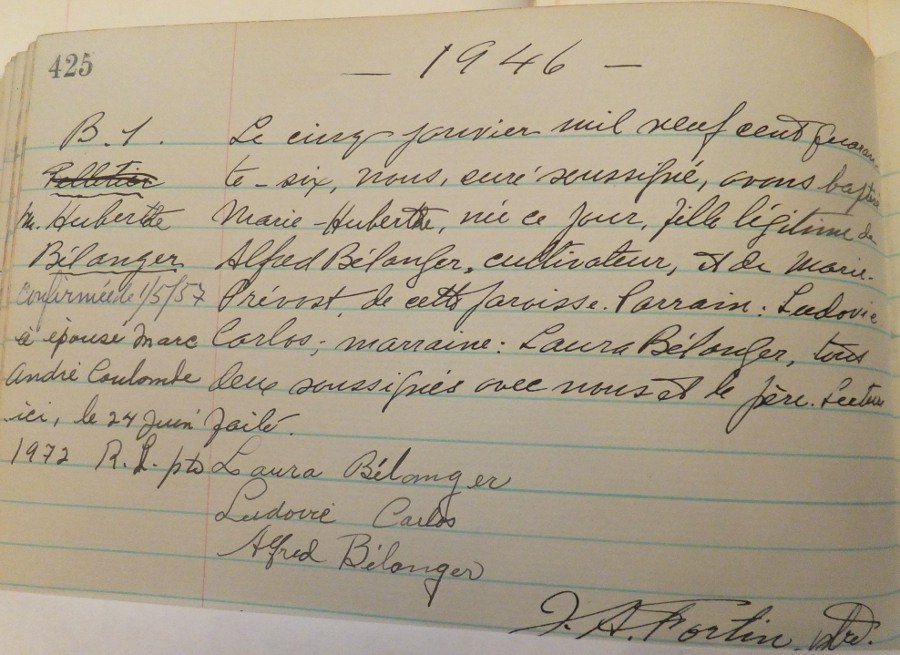 425
— 1946 —
B. 1.
Pelletier
M. Huberthe
Bélanger
Confirmée le 1/5/57
a épousé Marc
André Coulombe
ici, le 24 juin
1972 R. L. ptre
Le cinq janvier mil neuf cent quaran-
te-six, nous, curé soussigné, avons baptisé
Marie-Huberthe, née ce jour, fille légitime de
Alfred Bélanger, cultivateur, et de Marie-
Prévost de cette paroisse. Parrain: Ludovic
Carlos; marraine: Laura Bélanger, tous
deux soussignés avec nous et le père. Lecture
faite.
Laura Bélanger
Ludovic Carlos
Alfred Bélanger
J. A. Fortin ptre.